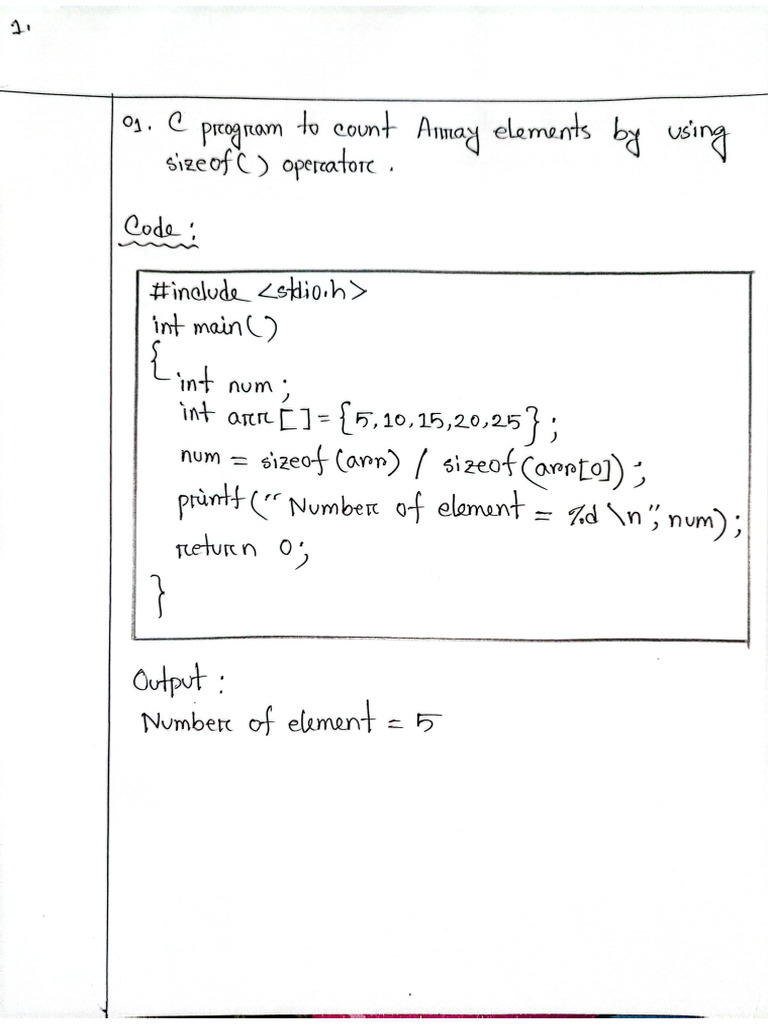 1.
01. C program to count Array elements by using
sizeof() operator.
Code:
#include <stdio.h>
int main()
{
int num;
int arr[]={5,10,15,20,25};
num = sizeof(arr) / sizeof(arr[0]);
printf("Number of element = %d \n", num);
return 0;
}
Output:
Number of element = 5